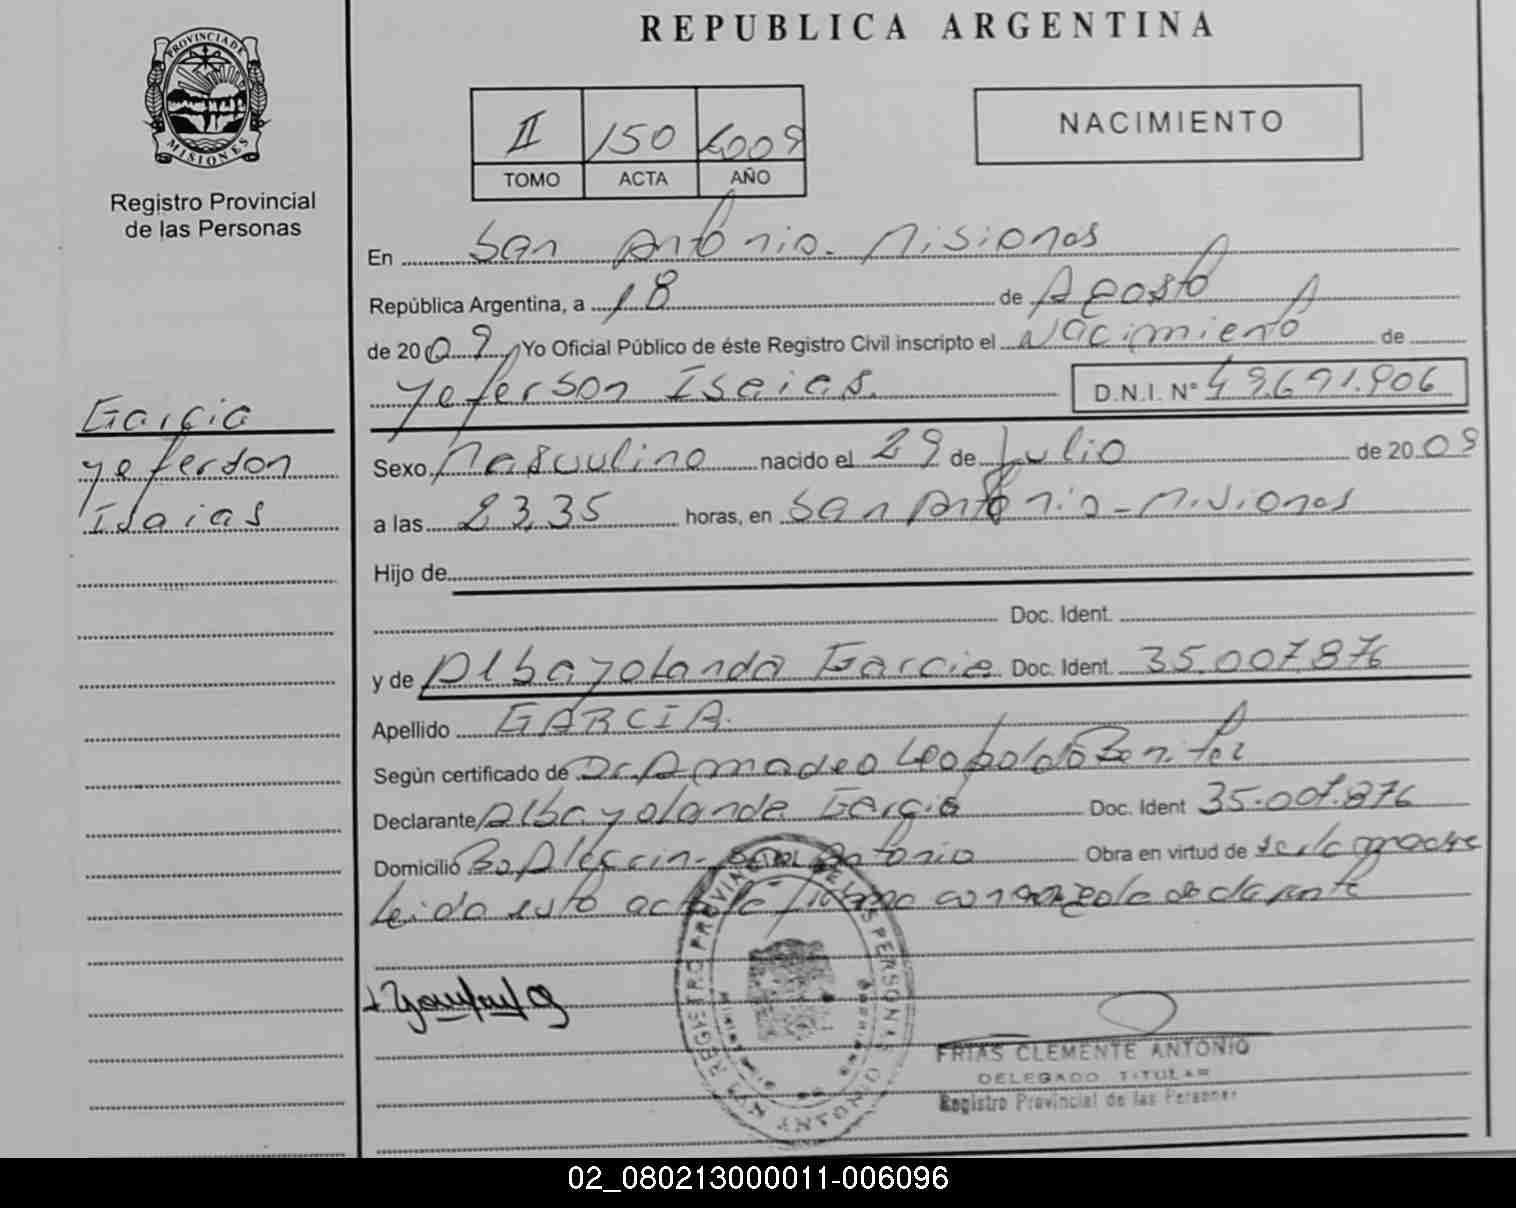 REPUBLICA ARGENTINA
PROVINCIA DE MISIONES
Registro Provincial
de las Personas
II 150 2009
TOMO ACTA AÑO
NACIMIENTO
En San Antonio - Misiones
República Argentina, a 18 de Agosto
de 2009 Yo Oficial Público de éste Registro Civil inscripto el Nacimiento de
Yeferson Isaias. D.N.I. N° 49.691.906
Garcia
Yeferson
Isaias
Sexo Masculino nacido el 29 de Julio de 2009
a las 23,35 horas, en San Antonio - Misiones
Hijo de
Doc. Ident.
y de Alba Yolanda Garcia Doc. Ident. 35.007.876
Apellido GARCIA.
Según certificado de Dr. Amadeo Leopoldo Benitez
Declarante Alba Yolanda Garcia Doc. Ident 35.007.876
Domicilio Bo Alegrin - San Antonio Obra en virtud de ser la madre
Leida esta acta la firma conmigo la declarante
REGISTRO PROVINCIAL DE LAS PERSONAS
SAN ANTONIO
FRIAS CLEMENTE ANTONIO
DELEGADO TITULAR
Registro Provincial de las Personas
02_080213000011-006096